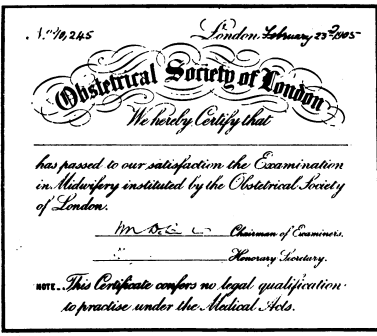 No. 10,245 London. February 23rd 1905
Obstetrical Society of London
We hereby Certify that
has passed to our satisfaction the Examination
in Midwifery instituted by the Obstetrical Society
of London.
Chairman of Examiners.
Honorary Secretary.
NOTE. This Certificate confers no legal qualification
to practise under the Medical Acts.